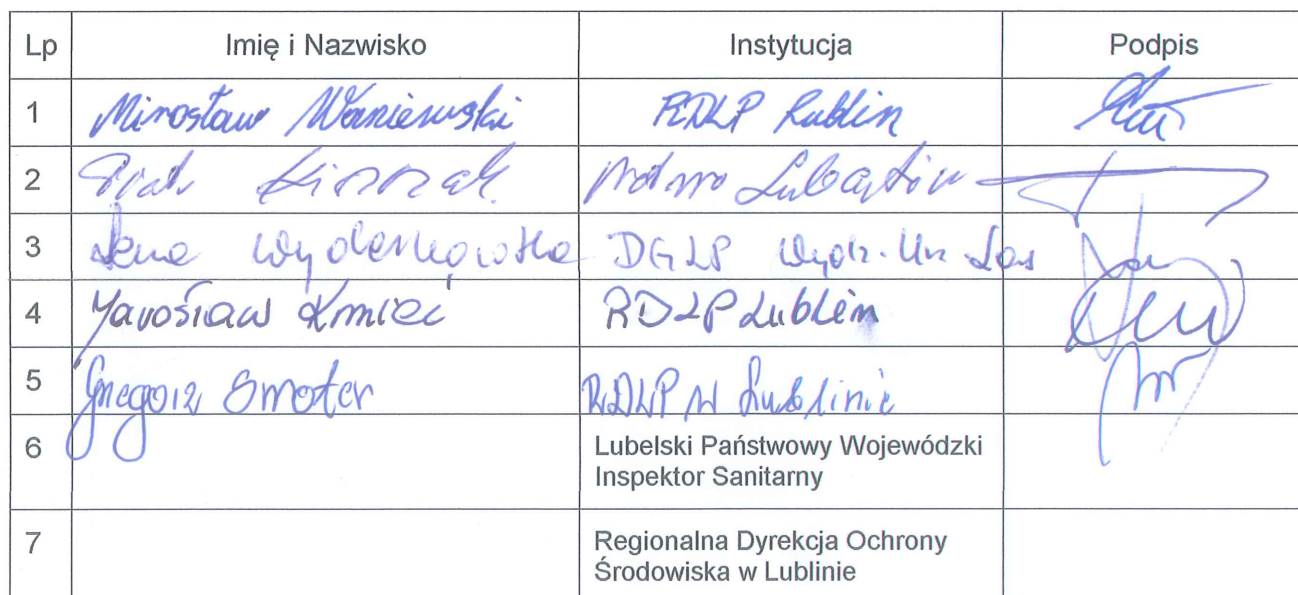 Lp Imię i Nazwisko Instytucja Podpis
1 Mirosław Waniewski RDLP Lublin
2 Piotr Lubartów
3 DGLP Wydz. Ur. Las
4 Jarosław Kmieć RDLP Lublin
5 Grzegorz Smoter RDLP w Lublinie
6 Lubelski Państwowy Wojewódzki
Inspektor Sanitarny
7 Regionalna Dyrekcja Ochrony
Środowiska w Lublinie